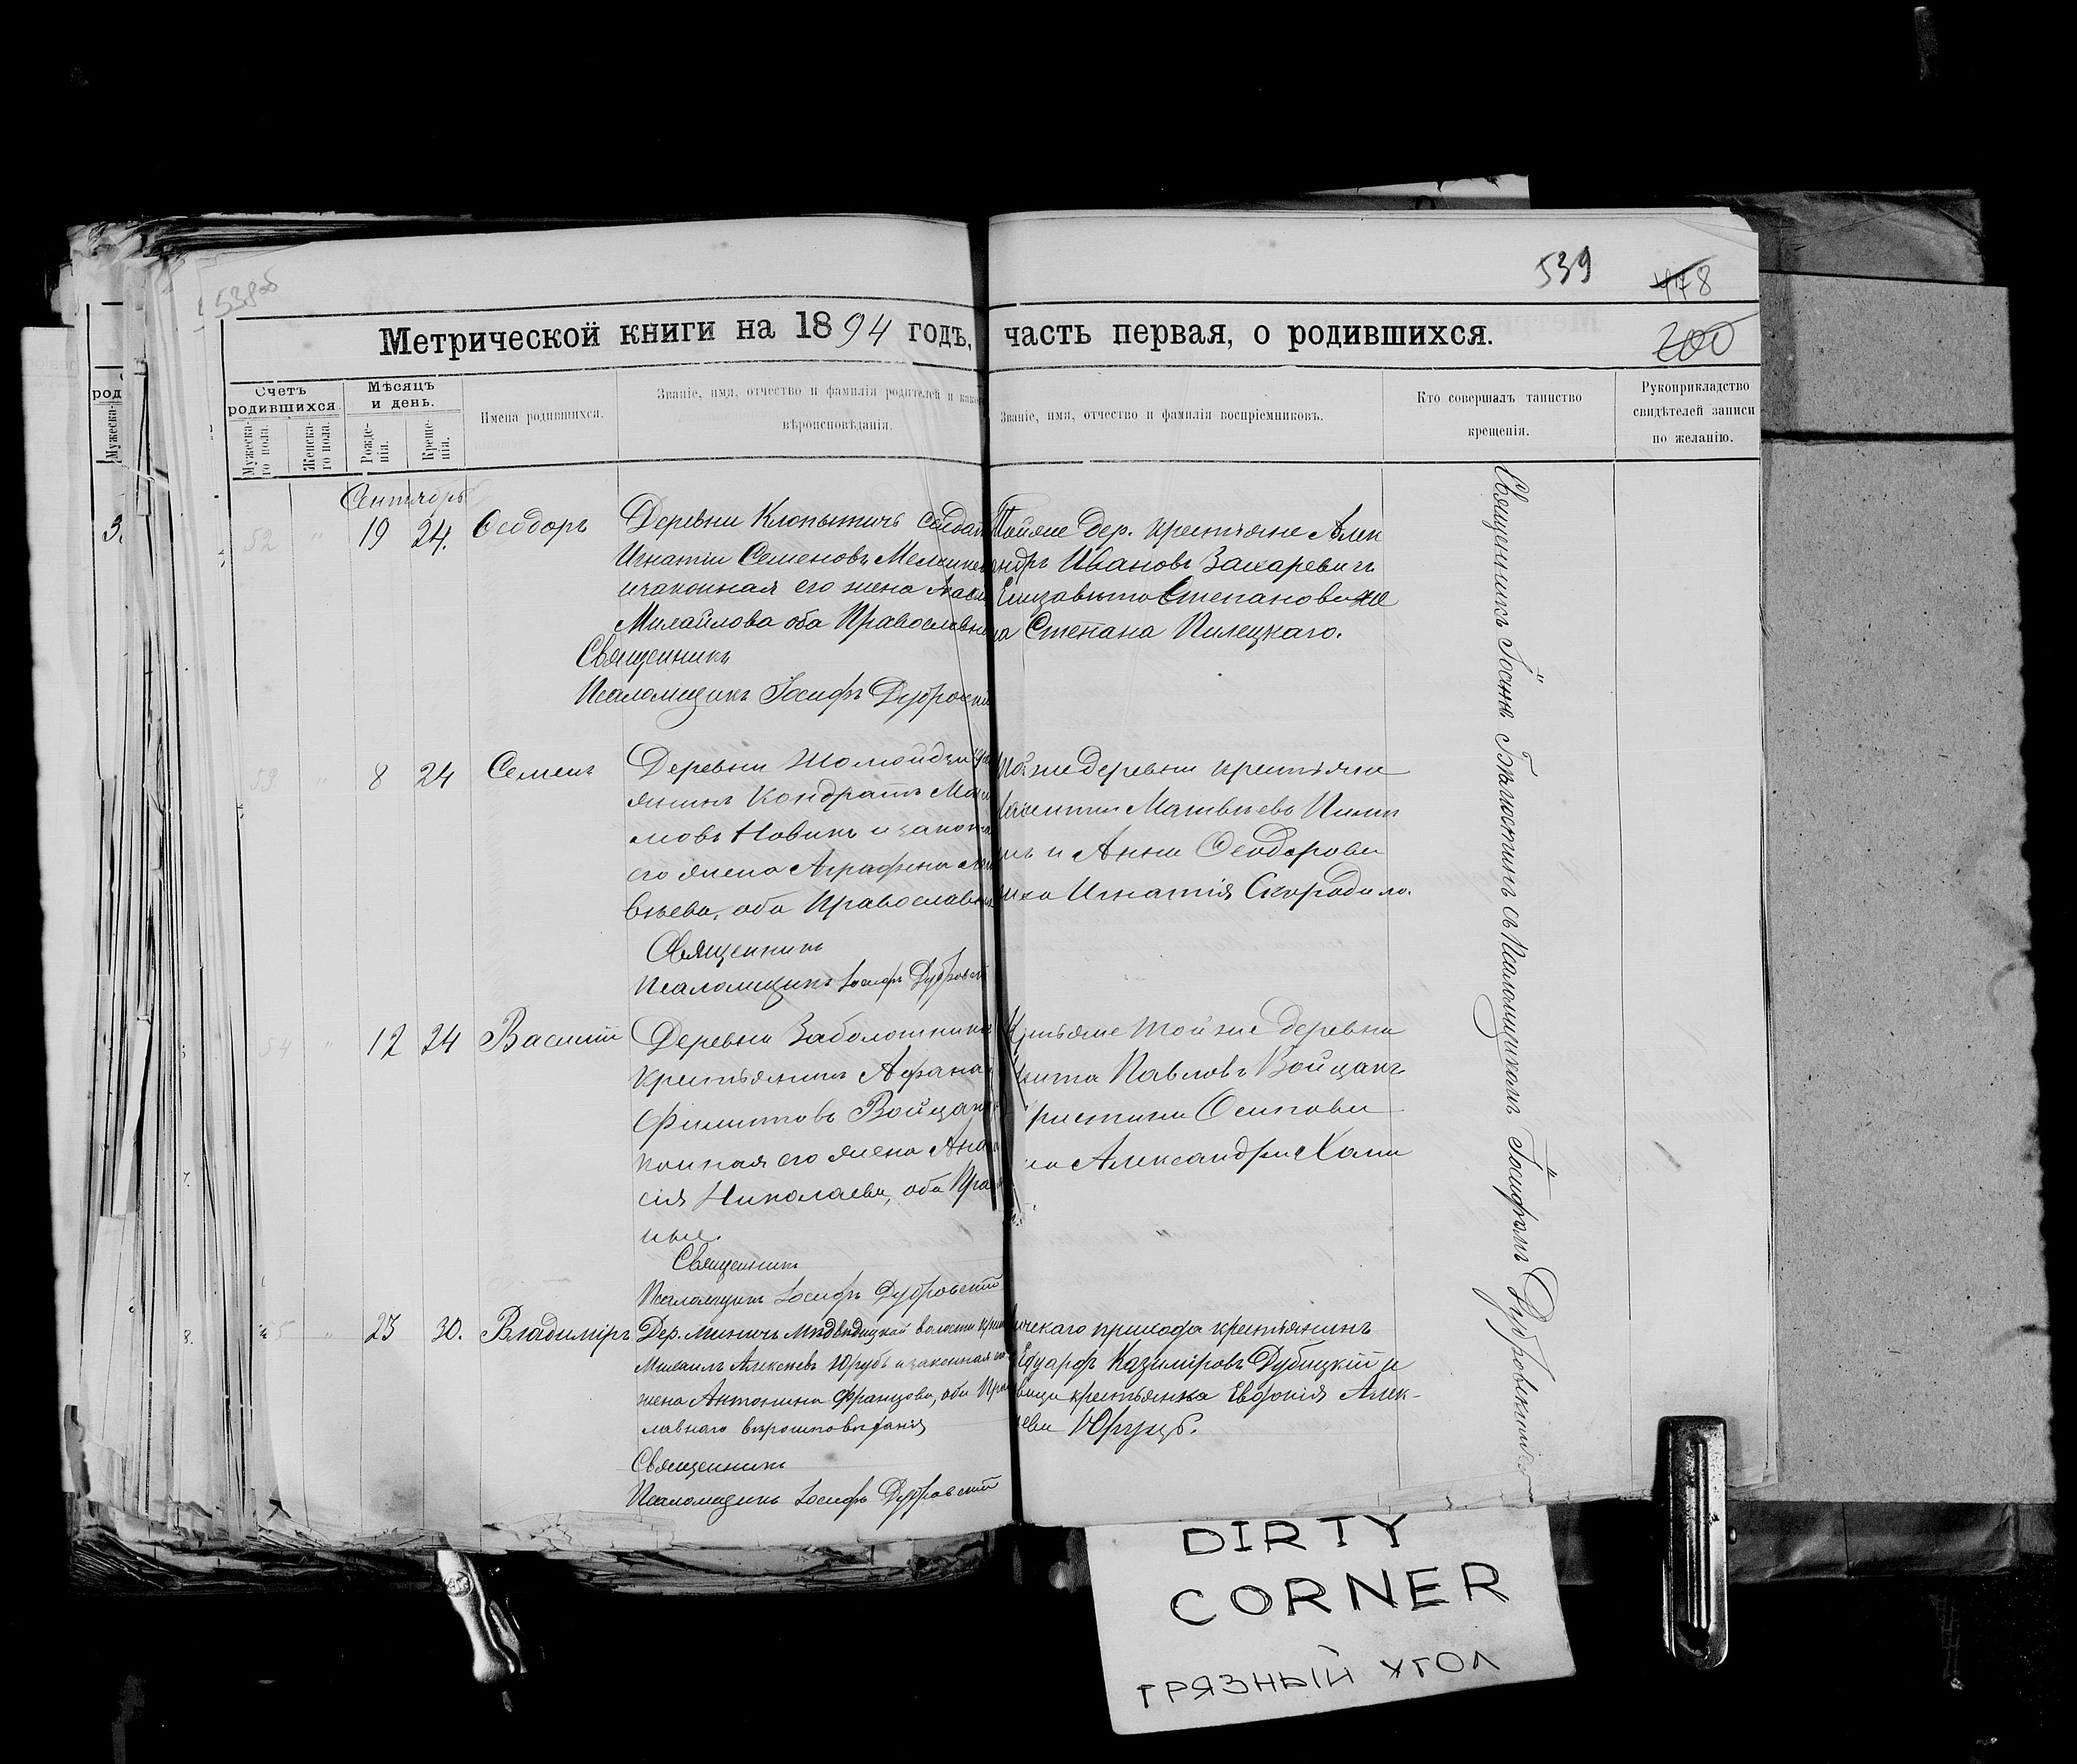 538об
539
478
200
Метрической книги на 1894 годъ, часть первая, о родившихся.
Счетъ родившихся.
Мужеска-го пола.
Женска-го пола.
Мѣсяцъ и день.
Рожде-нія.
Креще-нія.
Имена родившихся.
Званіе, имя, отчество и фамилія родителей и како
вѣроисповѣданія.
Званіе, имя, отчество и фамилія воспріемниковъ.
Кто совершалъ таинство
крещенія.
Рукоприкладство
свидѣтелей записи
по желанію.
Сентябрь
52 " 19 24. Ѳеодоръ
Деревни Клопыничь солдат
Игнатій Семеновъ
и законная его жена
Михайлова оба Православн
Священникъ
Псаломщикъ Іосифъ Дубровскі
Тойже дер. крестьяне Алек
андръ Ивановъ Захаревичъ
Елизавета Степанова же
на Степана Пилецкаго.
53 " 8 24 Семенъ
Деревни Жомойдзи
янинъ Кондратъ
мовъ Новикъ и закон
его жена Аграфена
вѣева, оба Православн
Священникъ
Псаломщикъ Іосифъ Дубровскі
Тойже деревни крестьяне
Матвѣевъ
и Анна Ѳеодорова
жена Игнатія Скородило.
54 " 12 24 Василій
Деревни Заболотники
Крестьянинъ Афана
Филиповъ Войцах
конная его жена Ана
сія Николаева, оба Пра
ные.
Священникъ
Псаломщикъ Іосифъ Дубровскій
Крестьяне тойже деревни
Никита Павловъ Войцахъ
ристина Осипова
на Александра
55 " 23 30. Владиміръ
Дер. Миничъ Медвѣдицкой волости крест
Михаилъ Алексѣевъ и законная его
жена Антонина Францова, оба Прав
лавнаго вѣроисповѣданія
Священникъ
Псаломщикъ Іосифъ Дубровскій
ическаго прихода крестьянинъ
Едуардъ Казиміровъ Дубицкій и
вица крестьянка Евдокія Алек-
ѣева
Священникъ Іоаннъ съ Псаломщикомъ Іосифомъ Дубровскимъ
3.
7.
8.
DIRTY
CORNER
ГРЯЗНЫЙ УГОЛ